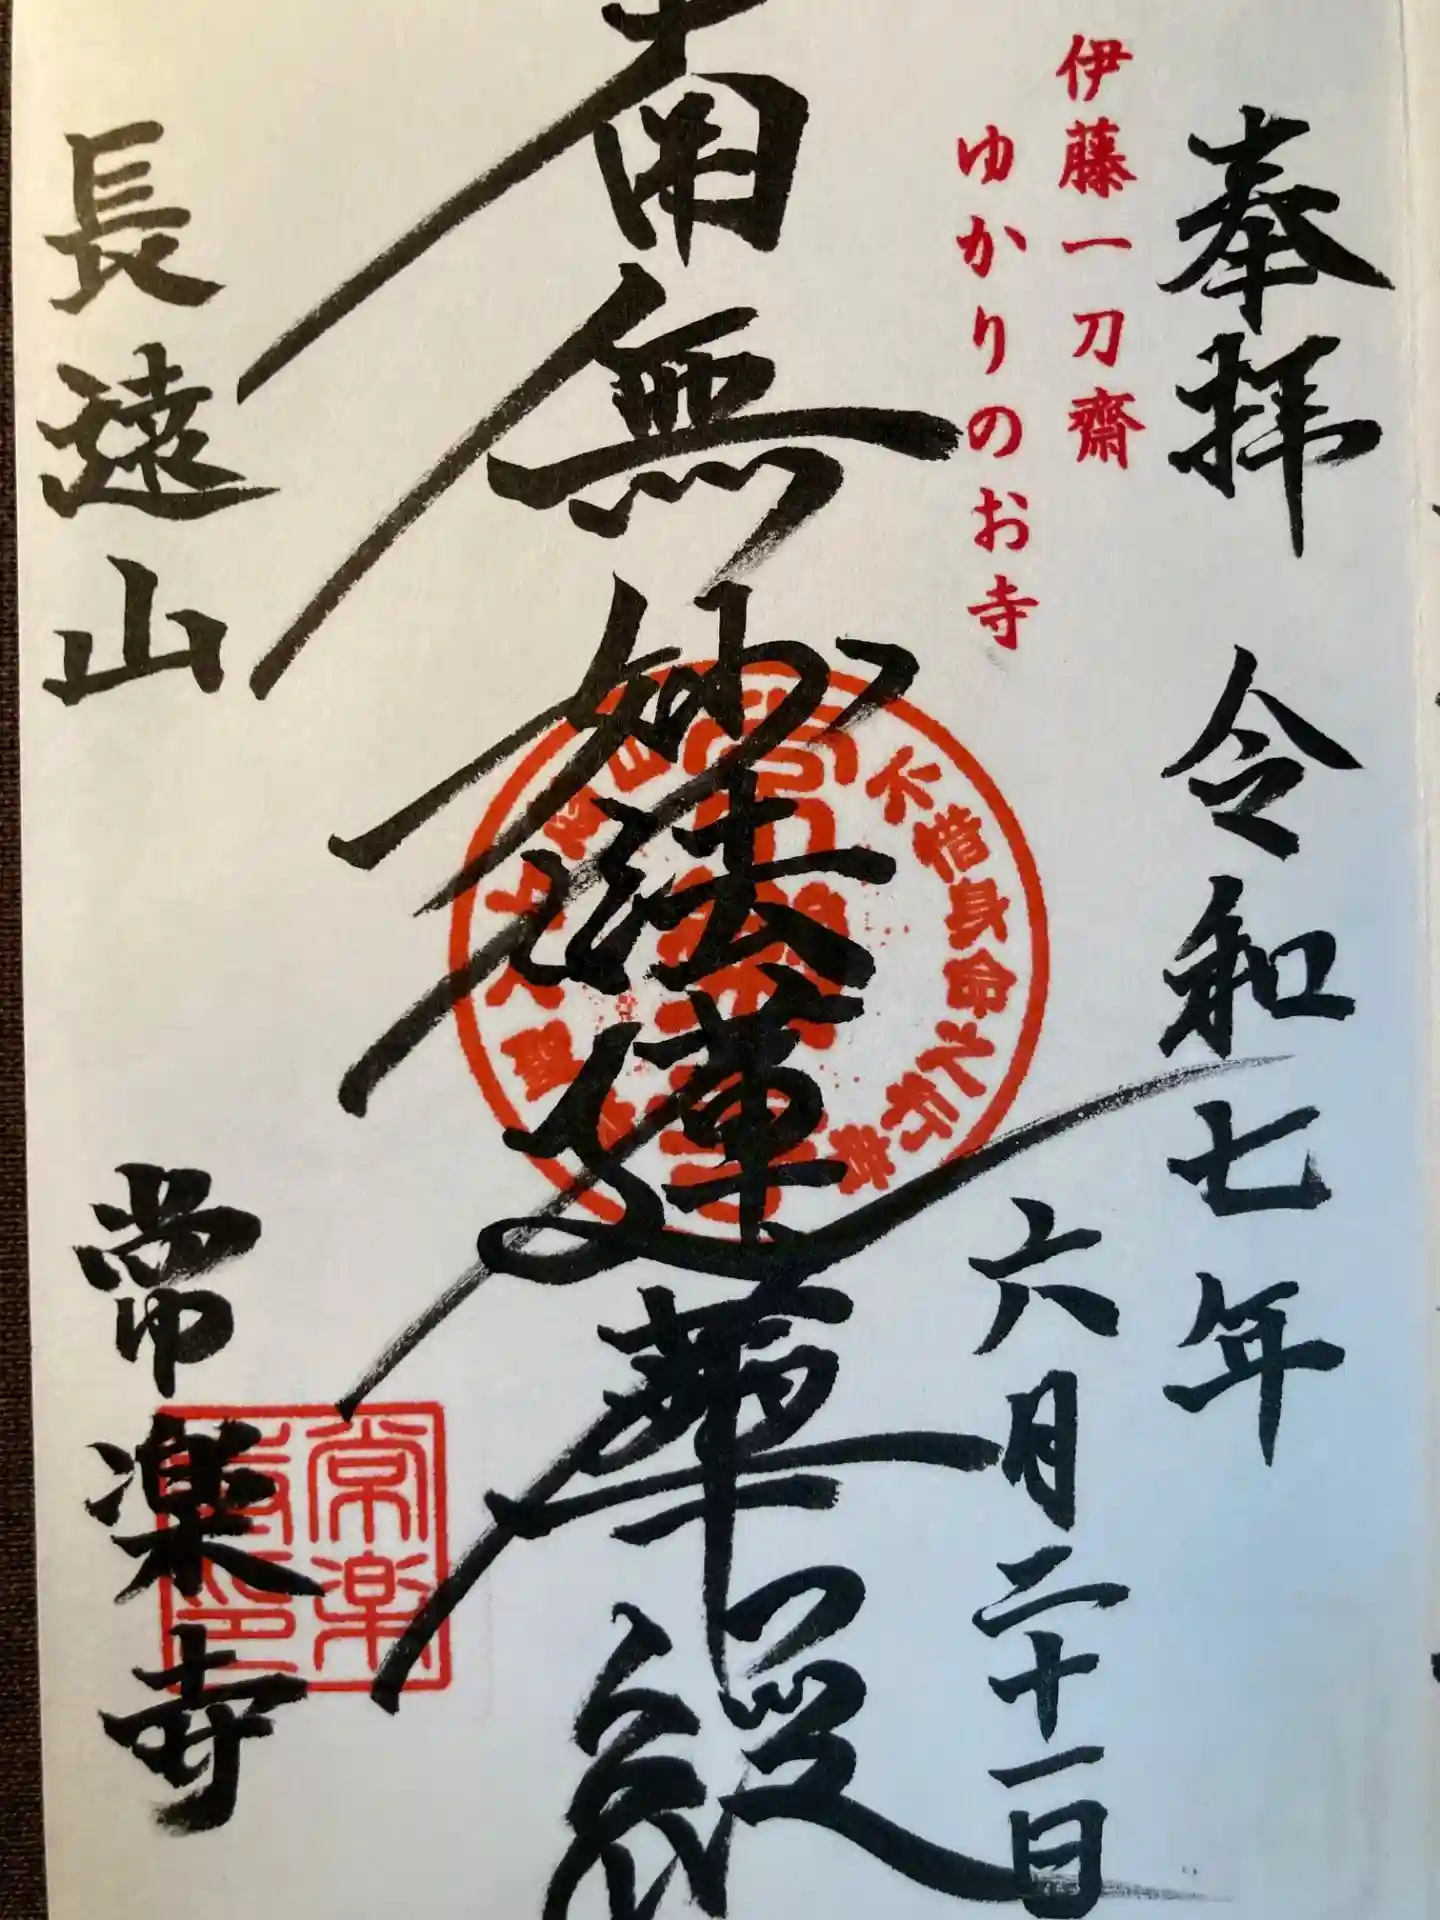 奉拝 令和七年
六月二十一日
伊藤一刀齋
ゆかりのお寺
南無妙法蓮華経
不惜身命之行者
常楽
長遠山
常楽寺